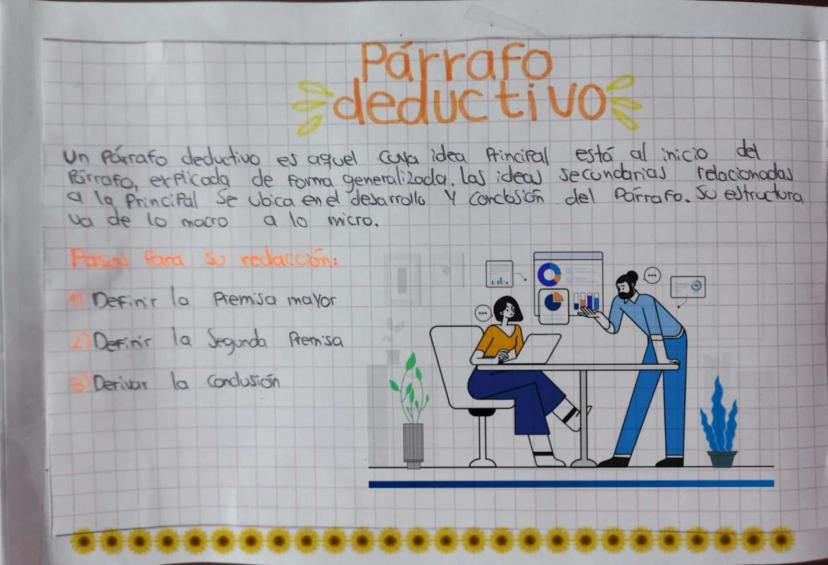 Párrafo
deductivo
Un Párrafo deductivo es aquel cuya idea Principal está al inicio del
Párrafo, expicada de forma generalizada. las ideas secundarias relacionadas
a la Principal se ubica en el desarrollo y conclusión del Párrafo. su estructura
va de lo macro a lo micro.
Pasos Para su redacción:
1) Definir la Premisa mayor
2) Definir la Segunda Premisa
3) Derivar la conclusión